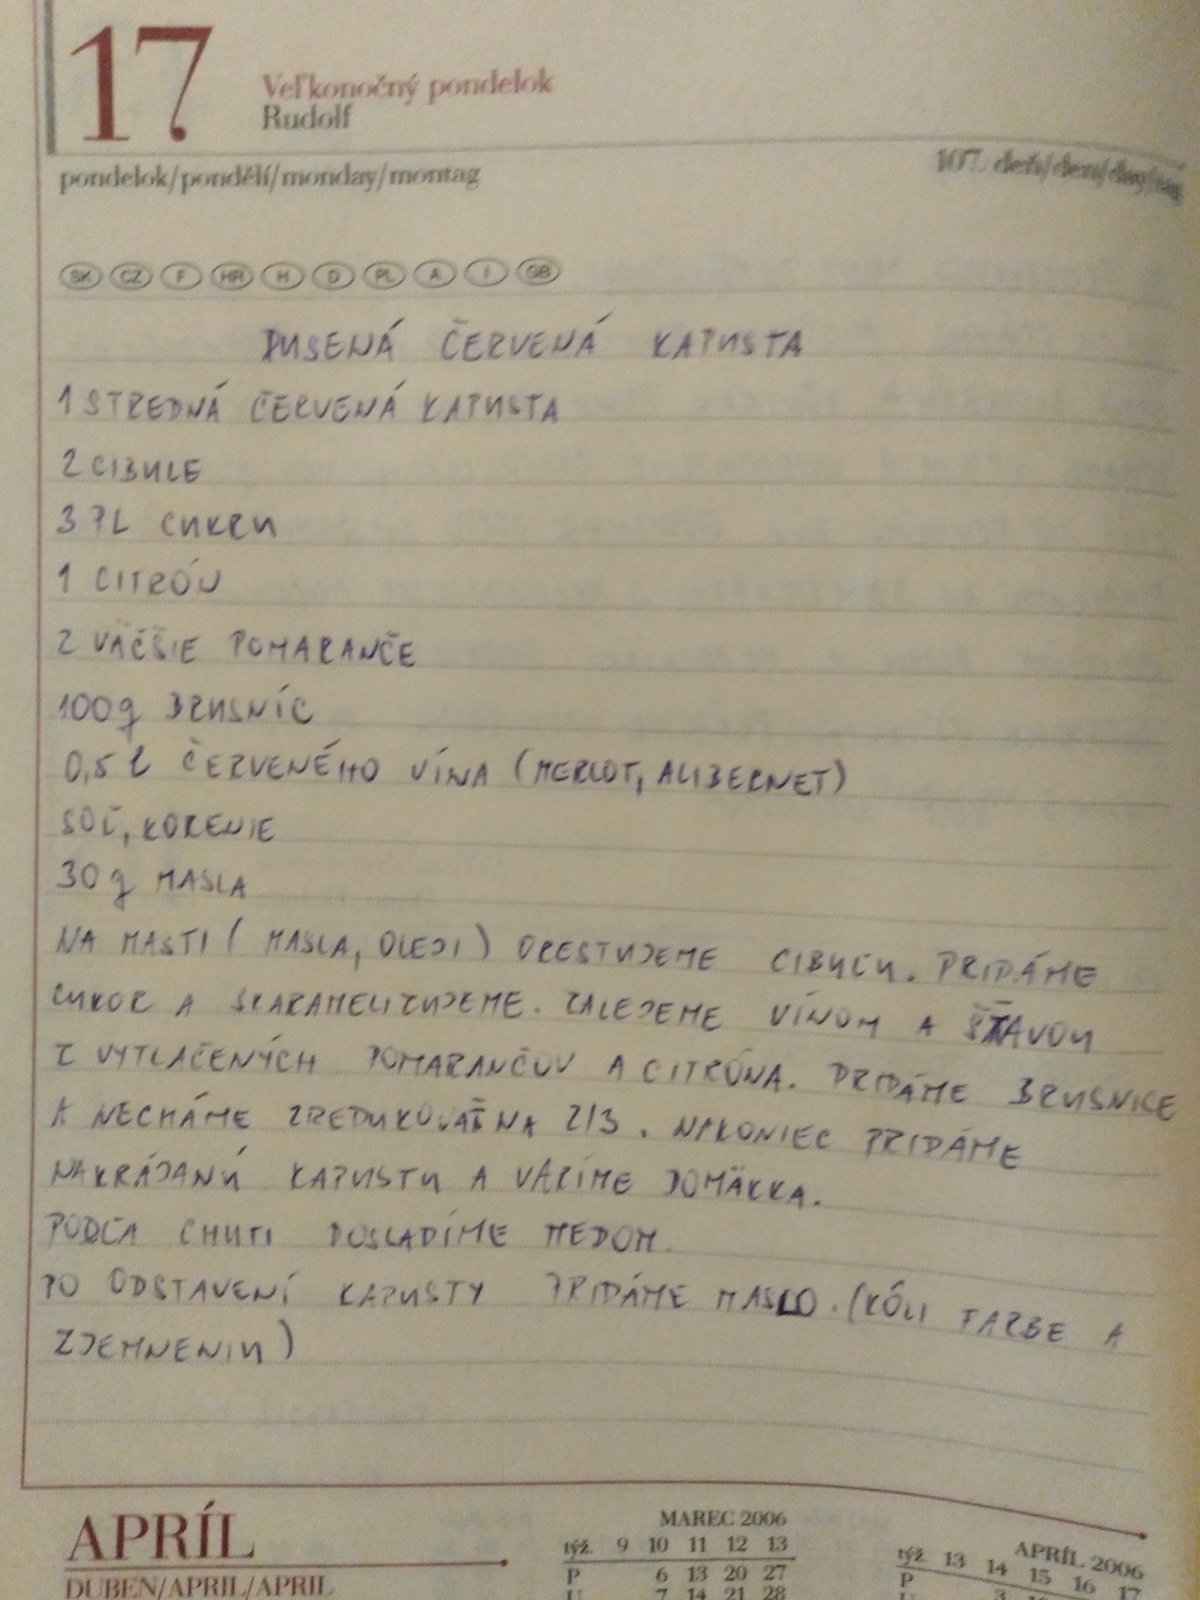 17
Veľkonočný pondelok
Rudolf
pondelok/pondělí/monday/montag
107. deň/den/day/
SK CZ F HR H D PL A I GB
DUSENÁ ČERVENÁ KAPUSTA
1 STREDNÁ ČERVENÁ KAPUSTA
2 CIBULE
3 PL CUKRU
1 CITRÓN
2 VÄČŠIE POMARANČE
100g BRUSNÍC
0,5 l ČERVENÉHO VÍNA (MERLOT, ALIBERNET)
SOĽ, KORENIE
30 g MASLA
NA MASTI ( MASLA, OLEJI ) ORESTUJEME CIBUĽU. PRIDÁME
CUKOR A SKARAMELIZUJEME. ZALEJEME VÍNOM A ŠŤAVOU
Z VYTLAČENÝCH POMARANČOV A CITRÓNA. PRIDÁME BRUSNICE
A NECHÁME ZREDUKOVAŤ NA 2/3. NAKONIEC PRIDÁME
NAKRÁJANÚ KAPUSTU A VARÍME DOMÄKKA.
PODĽA CHUTI DOSLADÍME MEDOM.
PO ODSTAVENÍ KAPUSTY PRIDÁME MASLO. (KÔLI FARBE A
ZJEMNENIU)
APRÍL
DUBEN/APRIL/APRIL
MAREC 2006
týž. 9 10 11 12 13
P 6 13 20 27
U 7 14 21 28
APRÍL 2006
týž. 13 14 15 16 17
P